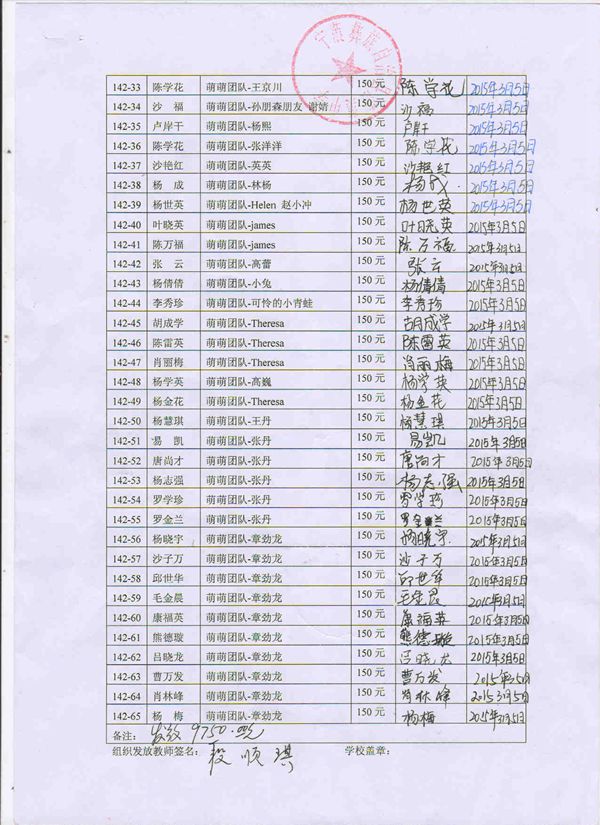 宁蒗彝族自治
142-33 陈学花 萌萌团队-王京川 150 元 陈学花 2015年3月5日
142-34 沙 福 萌萌团队-孙朋森朋友 谢婧 150 元 沙福 2015年3月5日
142-35 卢岸干 萌萌团队-杨熙 150 元 卢岸干 2015年3月5日
142-36 陈学花 萌萌团队-张洋洋 150 元 陈学花 2015年3月5日
142-37 沙艳红 萌萌团队-英英 150 元 沙艳红 2015年3月5日
142-38 杨 成 萌萌团队-林杨 150 元 杨成 2015年3月5日
142-39 杨世英 萌萌团队-Helen 赵小冲 150 元 杨世英 2015年3月5日
142-40 叶晓英 萌萌团队-james 150 元 叶晓英 2015年3月5日
142-41 陈万福 萌萌团队-james 150 元 陈万福 2015年3月5日
142-42 张 云 萌萌团队-高蕾 150 元 张云 2015年3月5日
142-43 杨倩倩 萌萌团队-小兔 150 元 杨倩倩 2015年3月5日
142-44 李秀珍 萌萌团队-可怜的小青蛙 150 元 李秀珍 2015年3月5日
142-45 胡成学 萌萌团队-Theresa 150 元 胡成学 2015年3月5日
142-46 陈雷英 萌萌团队-Theresa 150 元 陈雷英 2015年3月5日
142-47 肖丽梅 萌萌团队-Theresa 150 元 肖丽梅 2015年3月5日
142-48 杨学英 萌萌团队-高巍 150 元 杨学英 2015年3月5日
142-49 杨金花 萌萌团队-Theresa 150 元 杨金花 2015年3月5日
142-50 杨慧琪 萌萌团队-王丹 150 元 杨慧琪 2015年3月5日
142-51 易 凯 萌萌团队-张丹 150 元 易凯 2015年3月5日
142-52 唐尚才 萌萌团队-张丹 150 元 唐尚才 2015年3月5日
142-53 杨志强 萌萌团队-张丹 150 元 杨志强 2015年3月5日
142-54 罗学珍 萌萌团队-张丹 150 元 罗学珍 2015年3月5日
142-55 罗金兰 萌萌团队-张丹 150 元 罗金兰 2015年3月5日
142-56 杨晓宇 萌萌团队-章劲龙 150 元 杨晓宇 2015年3月5日
142-57 沙子万 萌萌团队-章劲龙 150 元 沙子万 2015年3月5日
142-58 邱世华 萌萌团队-章劲龙 150 元 邱世华 2015年3月5日
142-59 毛金晨 萌萌团队-章劲龙 150 元 毛金晨 2015年3月5日
142-60 康福英 萌萌团队-章劲龙 150 元 康福英 2015年3月5日
142-61 熊德璇 萌萌团队-章劲龙 150 元 熊德璇 2015年3月5日
142-62 吕晓龙 萌萌团队-章劲龙 150 元 吕晓龙 2015年3月5日
142-63 曹万发 萌萌团队-章劲龙 150 元 曹万发 2015年3月5日
142-64 肖林峰 萌萌团队-章劲龙 150 元 肖林峰 2015年3月5日
142-65 杨 梅 萌萌团队-章劲龙 150 元 杨梅 2015年3月5日
备注： 发放 9750.00元
组织发放教师签名： 段顺琪 学校盖章：